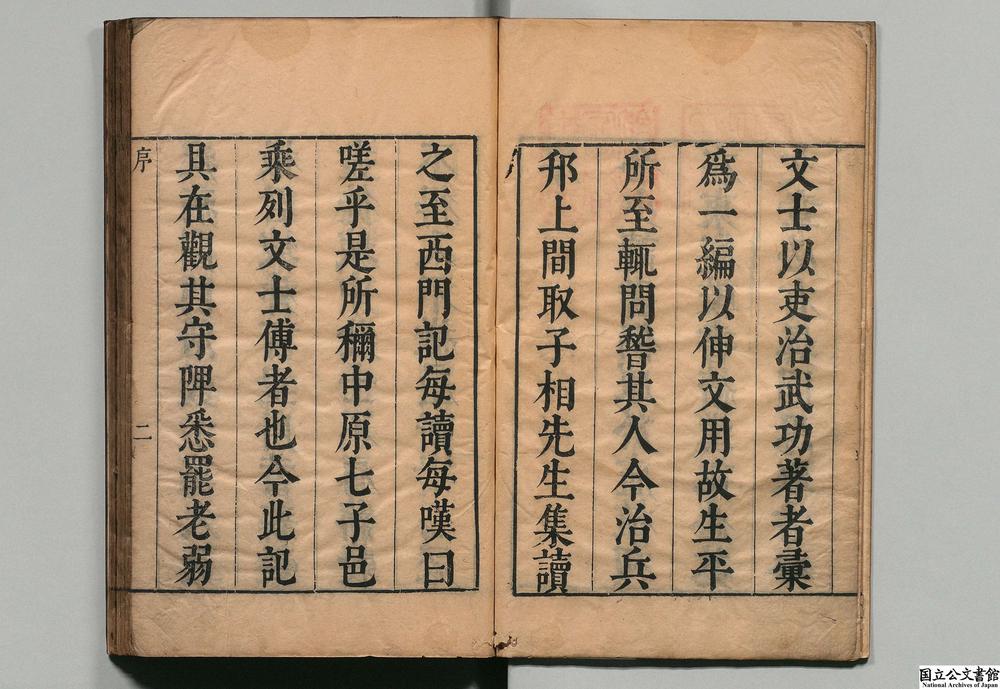 文士以吏治武功著者彙
爲一編以伸文用故生平
所至輒問詧其人今治兵
邗上間取子相先生集讀
之至西門記每讀每嘆曰
嗟乎是所稱中原七子邑
乘列文士傳者也今此記
具在觀其守陴悉罷老弱
序
二
国立公文書館
National Archives of Japan